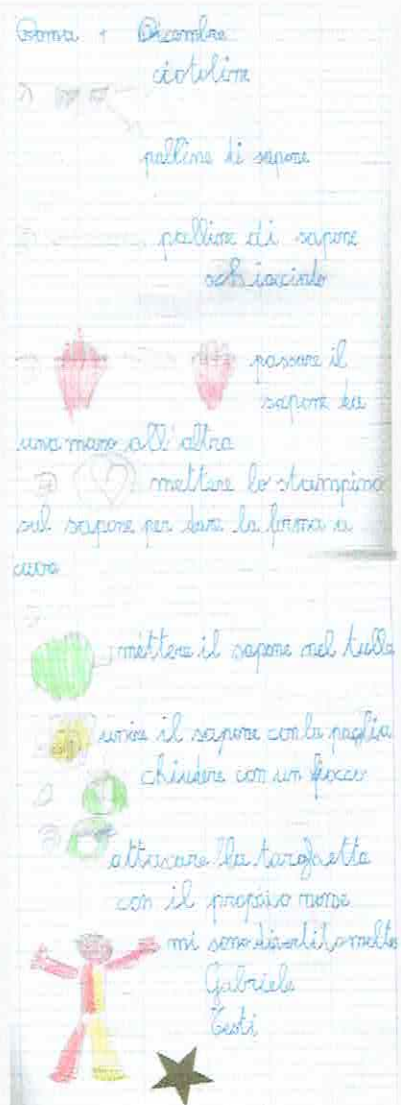 Roma 1 Dicembre
ciotoline
palline di sapone
palline di sapone
schiacciato
passare il
sapone da
una mano all'altra
mettere lo stampino
sul sapone per dare la forma a
cuore
mettere il sapone nel tulle
unire il sapone con la paglia
chiudere con un fiocco
attaccare la targhetta
con il proprio nome
mi sono divertito molto
Gabriele
Testi